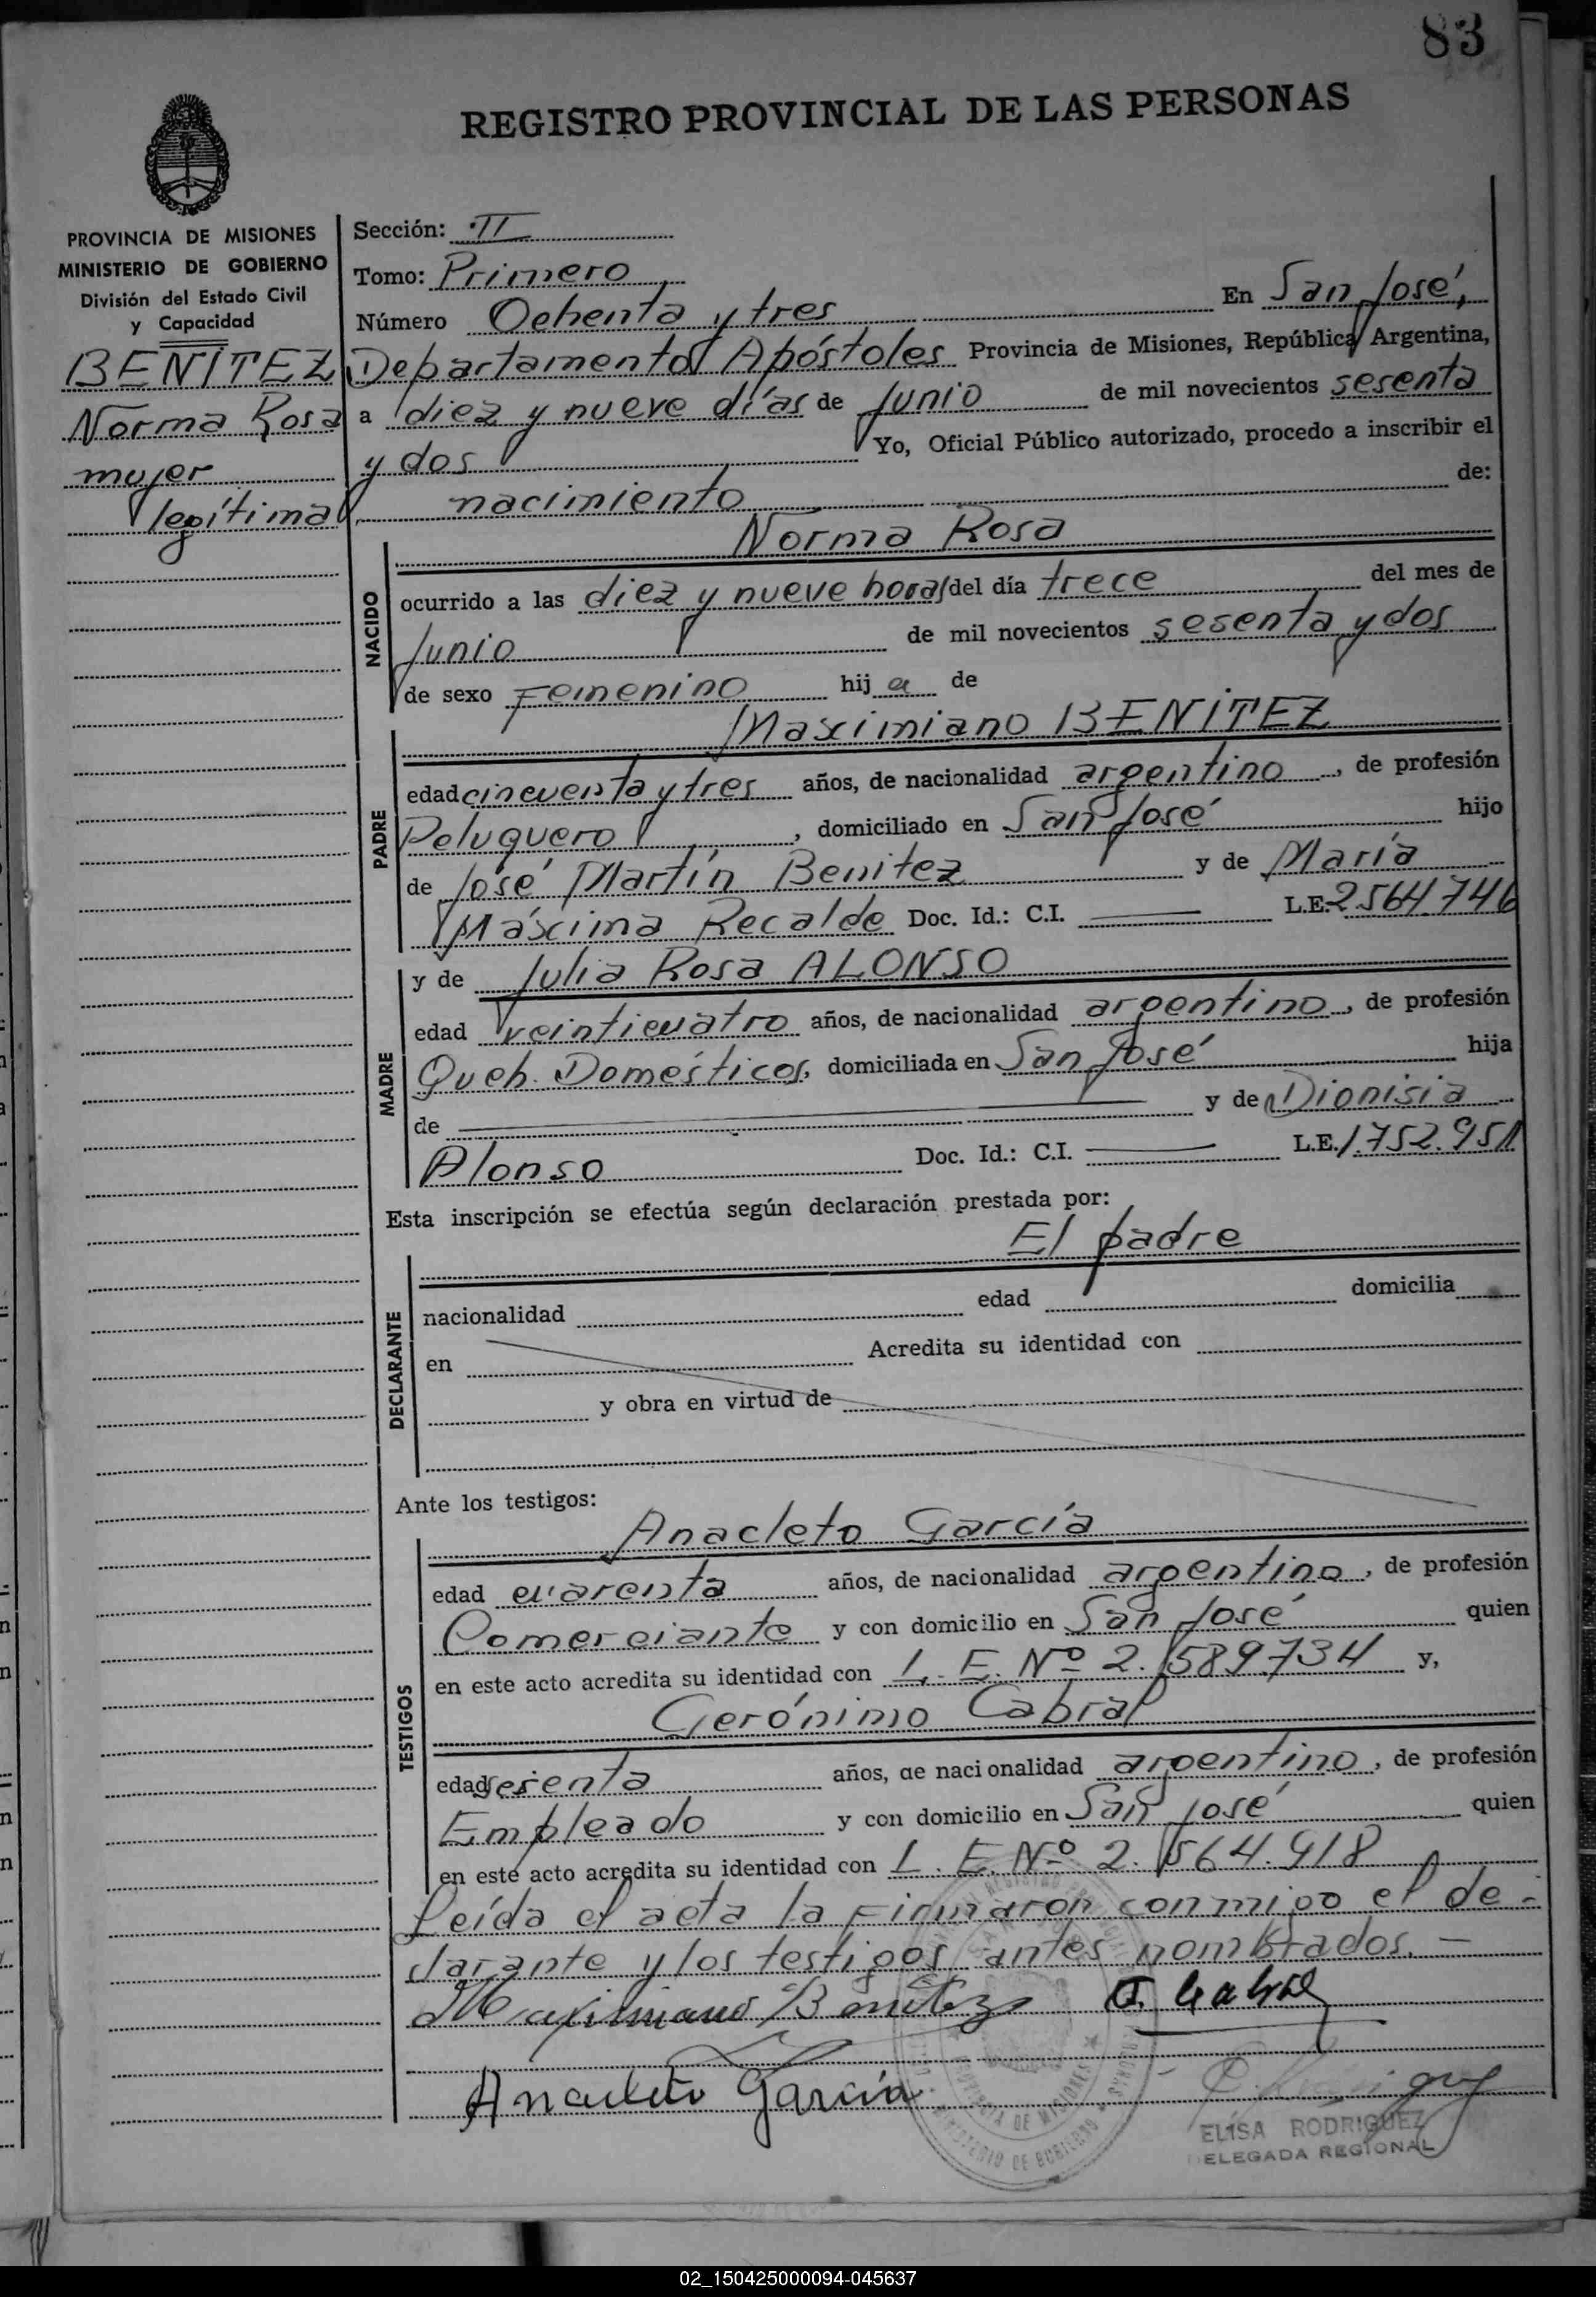 83
REGISTRO PROVINCIAL DE LAS PERSONAS
PROVINCIA DE MISIONES
MINISTERIO DE GOBIERNO
División del Estado Civil
y Capacidad
BENÍTEZ
Norma Rosa
mujer
legítima
Sección: II
Tomo: Primero
Número Ochenta y tres En San José,
Departamento Apóstoles Provincia de Misiones, República Argentina,
a diez y nueve días de Junio de mil novecientos sesenta
y dos Yo, Oficial Público autorizado, procedo a inscribir el
nacimiento de:
NACIDO
Norma Rosa
ocurrido a las diez y nueve horas del día trece del mes de
Junio de mil novecientos sesenta y dos
de sexo Femenino hij a de
PADRE
Maximiano BENÍTEZ
edad cincuenta y tres años, de nacionalidad argentino, de profesión
Peluquero, domiciliado en San José hijo
de José Martín Benitez y de María
Máxima Recalde Doc. Id.: C.I. L.E. 2.564.746
MADRE
y de Julia Rosa ALONSO
edad veinticuatro años, de nacionalidad argentino, de profesión
Queh. Domésticos, domiciliada en San José hija
de y de Dionisia
Alonso Doc. Id.: C.I. L.E. 1.752.951
Esta inscripción se efectúa según declaración prestada por:
El padre
DECLARANTE
nacionalidad edad domicilia
en Acredita su identidad con
y obra en virtud de
Ante los testigos:
TESTIGOS
Anacleto García
edad cuarenta años, de nacionalidad argentino, de profesión
Comerciante y con domicilio en San José quien
en este acto acredita su identidad con L. E. Nº 2.589.734 y,
Gerónimo Cabral
edad sesenta años, de nacionalidad argentino, de profesión
Empleado y con domicilio en San José quien
en este acto acredita su identidad con L. E. Nº 2.564.918
Leída el acta la firmaron conmigo el de-
clarante y los testigos antes nombrados. —
Maximiano Benitez G. Cabral
Anacleto García
PROVINCIA DE MISIONES
MINISTERIO DE GOBIERNO
ELISA RODRIGUEZ
DELEGADA REGIONAL
02_150425000094-045637